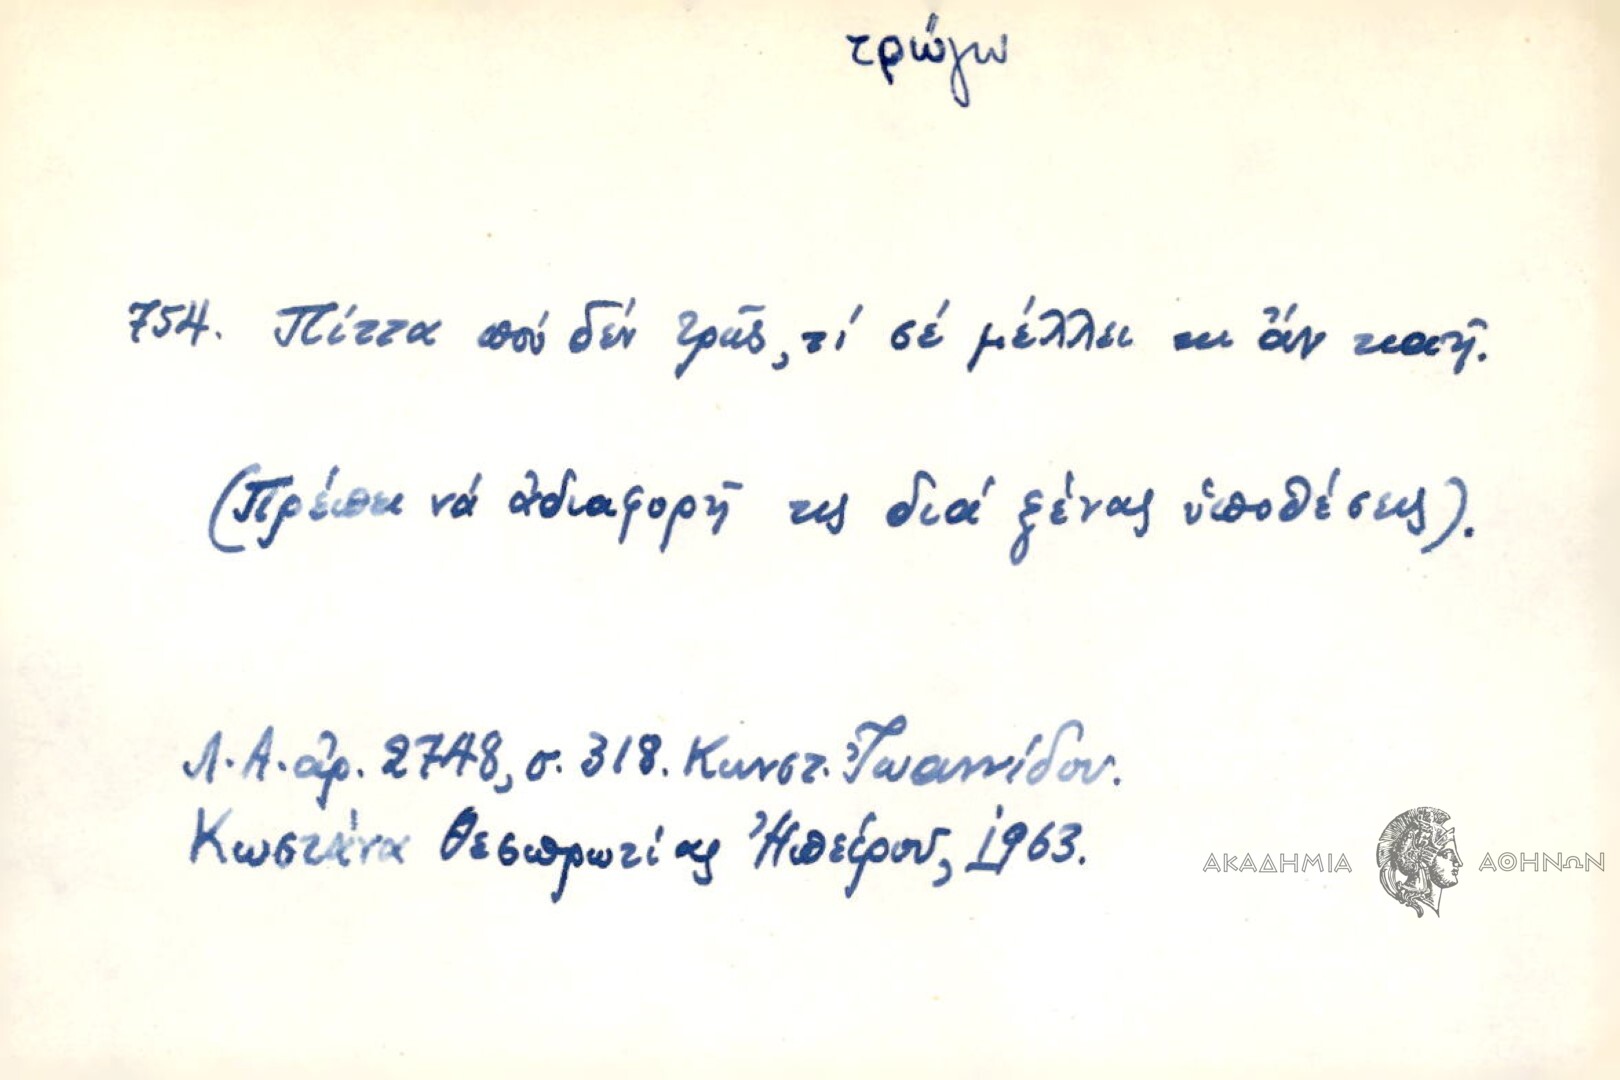 τρώγω
754. Πίττα πού δέν τρῶς, τί σέ μέλλει κι ἄν καῇ.
(Πρέπει νά ἀδιαφορῇ τις διά ξένας ὑποθέσεις).
Λ.Α. ἀρ. 2748, σ. 318. Κωνστ. Ἰωαννίδου.
Κωστάνα Θεσπρωτίας Ἠπείρου, 1963.
ΑΚΑΔΗΜΙΑ ΑΘΗΝΩΝ